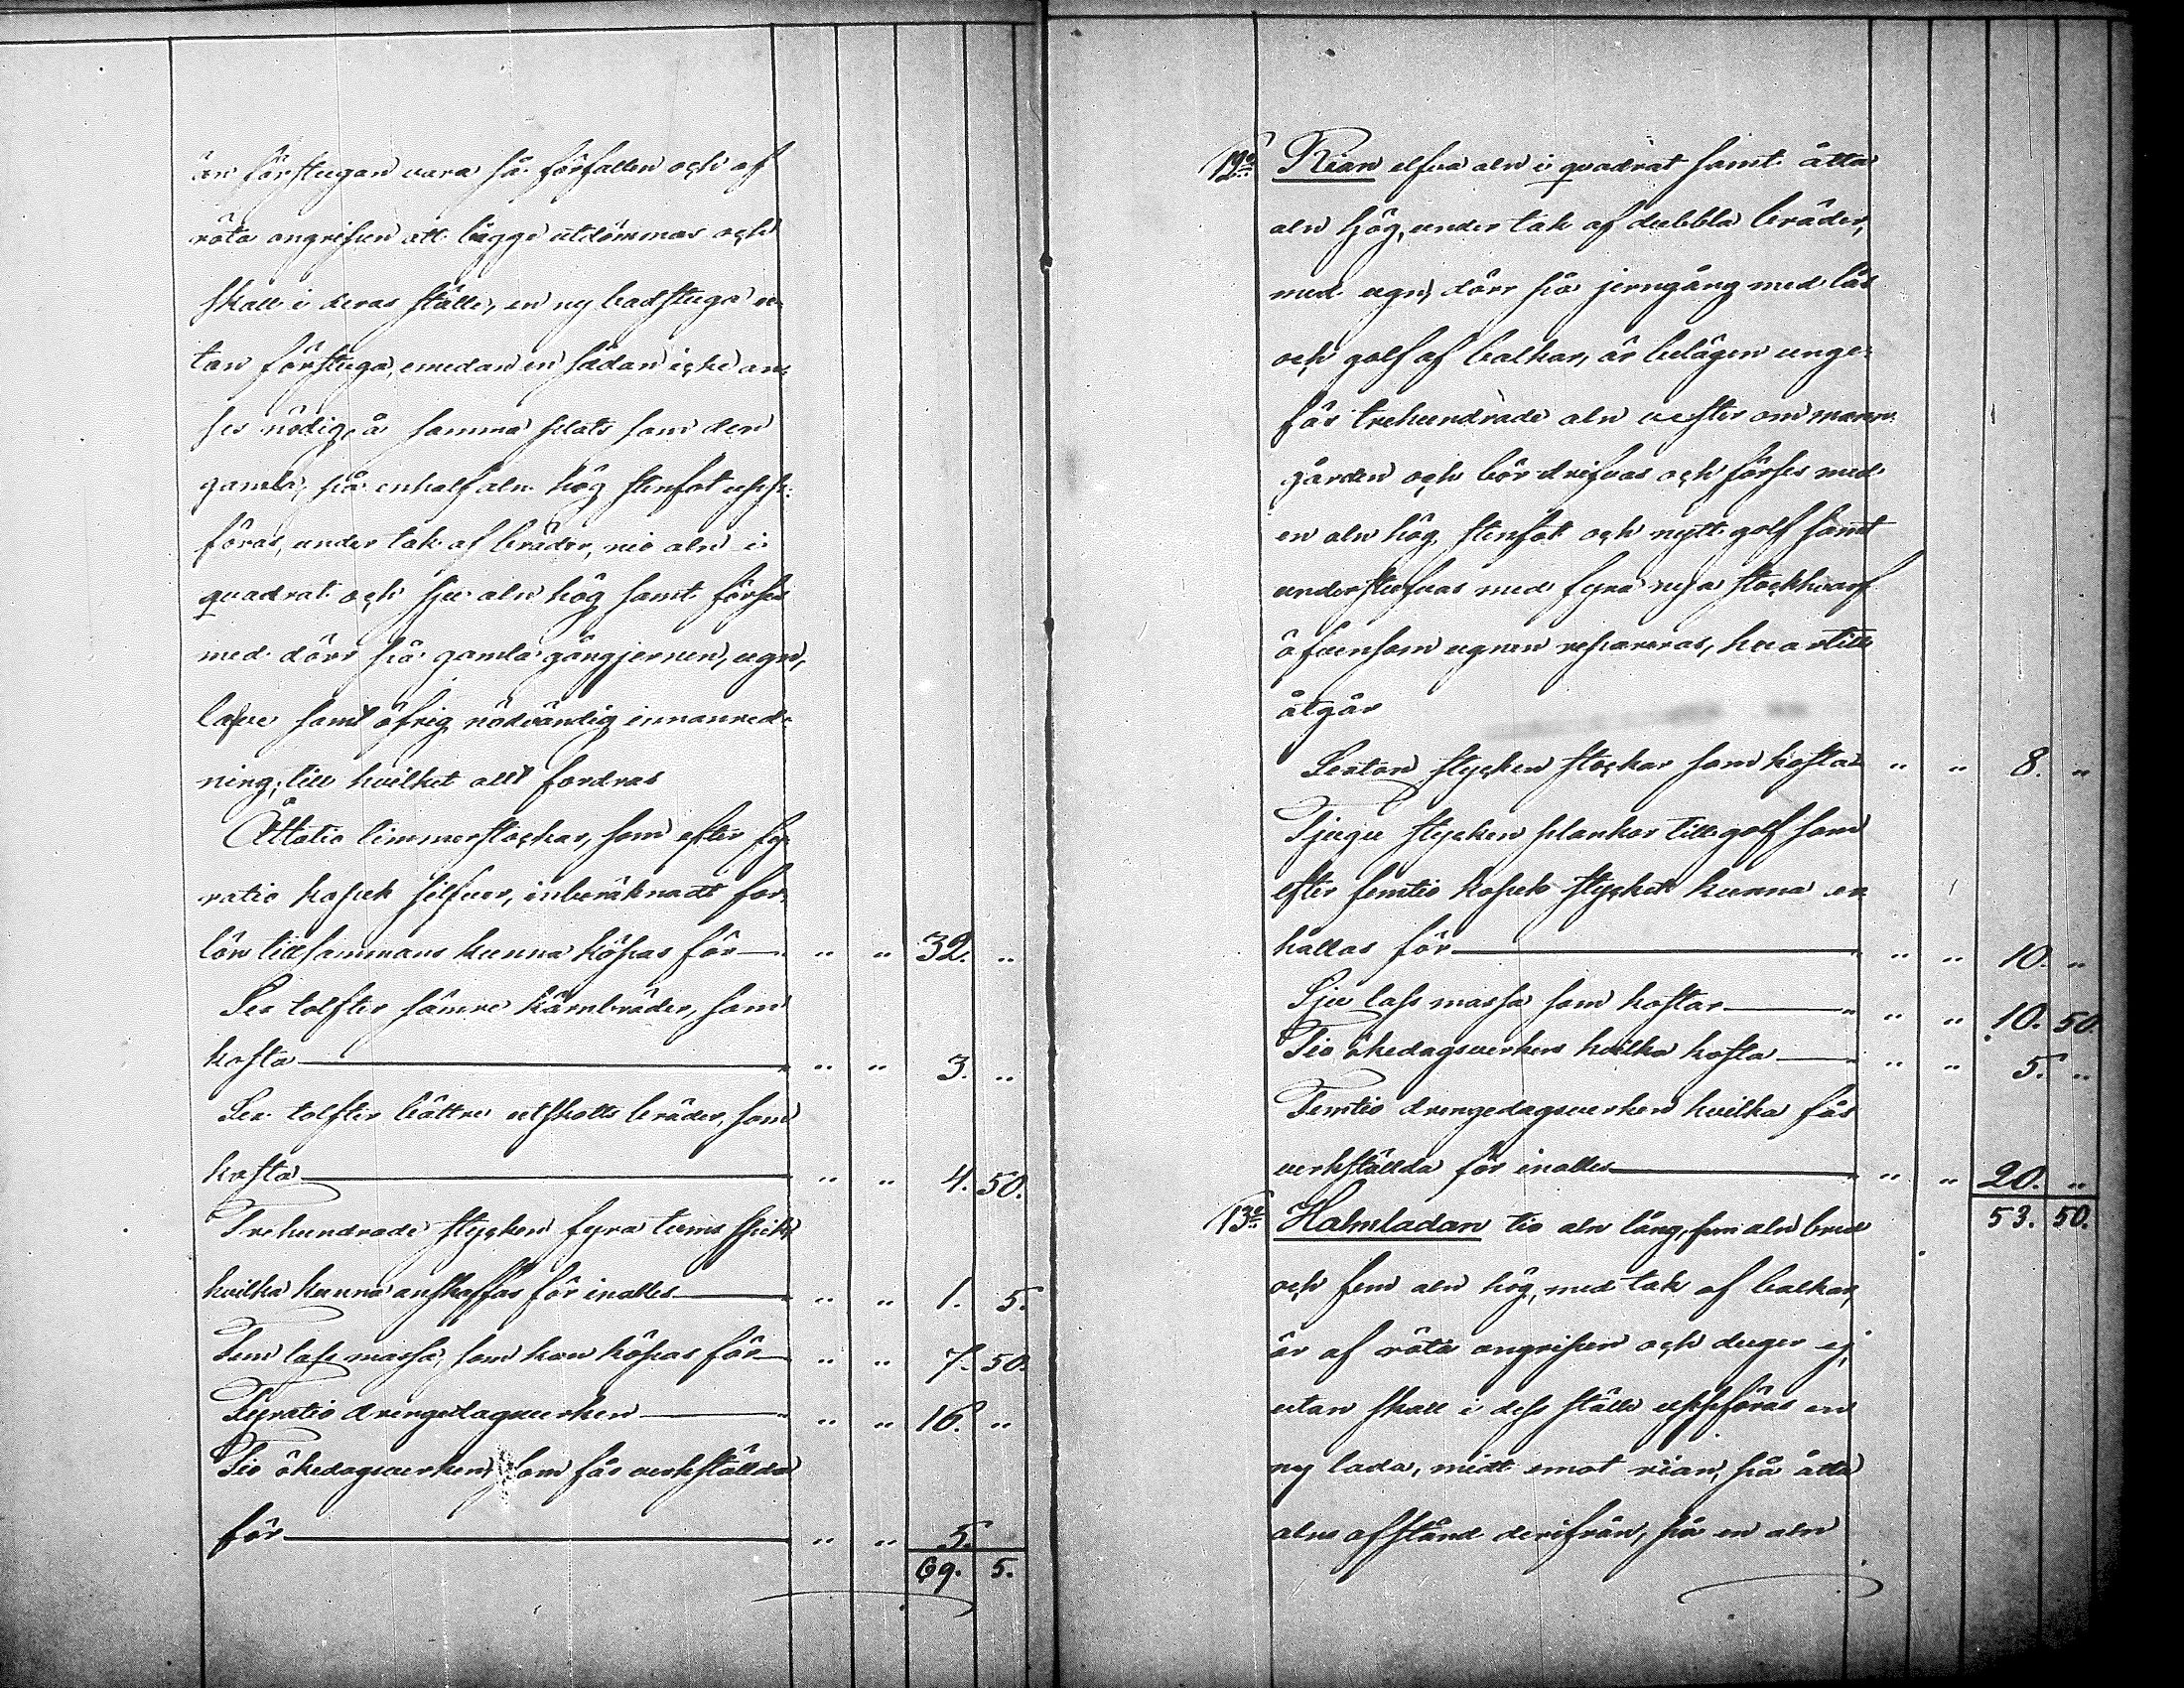 än förstugan vara så förfallen och af
röta angripen att bägge utdömmas och
skall i deras ställe, en ny badstuga u-
tan förstuga, emedan en sådan icke an-
ses nödig, å samma plats som den
gamla, på en half aln hög stenfot upp-
föras, under tak af bräder, nio aln i
quadrat och sju aln hög samt förses
med dörr på gamla gångjernen, ugn,
lafve samt öfrig nödvändig innanred-
ning, till hvilket allt fordras
Åttatio timmerstockar, som efter fyr-
ratio kopek silfver, inberäknadt for-
lön tillsammans kunna köpas för — " " 32. "
Sex tolfter sämre kärnbräder, som
kosta — " " 3. "
Sex tolfter bättre utskotts bräder, som
kosta — " " 4. 50.
Trehundrade stycken fyra tums spik
hvilka kunna anskaffas för inalles — " " 1. 5.
Fem lass mossa, som kan köpas för — " " 7. 50.
Fyratio drengedagsverken — " " 16. "
Tio ökedagsverken, som fås verkställda
för — " " 5.
69. 5.
12o Rian elfva aln i quadrat samt åtta
aln hög, under tak af dubbla bräder,
med ugn, dörr på jerngång med lås
och golf af balkar, är belägen unge-
fär trehundrade aln vester om mann-
gården och bör drifvas och förses med
en aln hög stenfot och nytt golf samt
understufvas med fyra nya stockhvarf
äfvensom ugnen repareras, hvartill
åtgår
Sexton stycken stockar som kosta " " 8. "
Tjugu stycken plankor till golf som
efter femtio kopek stycket kunna er
hållas för — " " 10. "
Sju lass mossa som kostar — " " 10. 50.
Tio ökedagsverken hvilka kosta — " " 5. "
Femtio drengedagsverken hvilka fås
verkställda för inalles — " " 20. "
53. 50.
13o Halmladan tio aln lång, fem aln bred
och fem aln hög, med tak af balkar,
är af röta angripen och duger ej,
utan skall i dess ställe uppföras en
ny lada, midt emot rian, på åtta
alns afstånd derifrån, på en aln